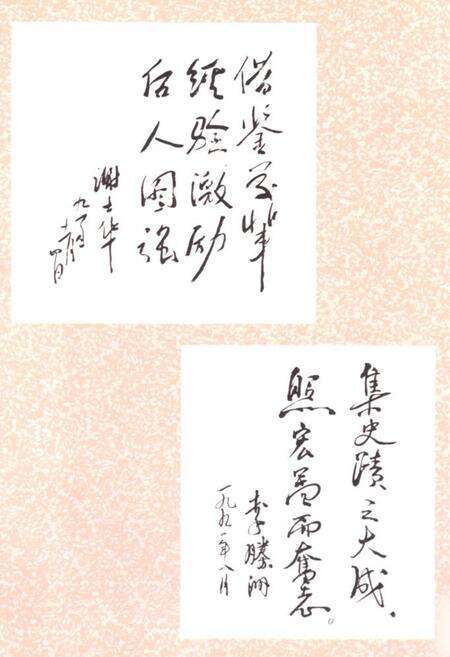 借鉴前辈
经验激励
后人图强
谢士华
集史蹟之大成，
照宏图而奋志。
李胜洲
一九九一年八月